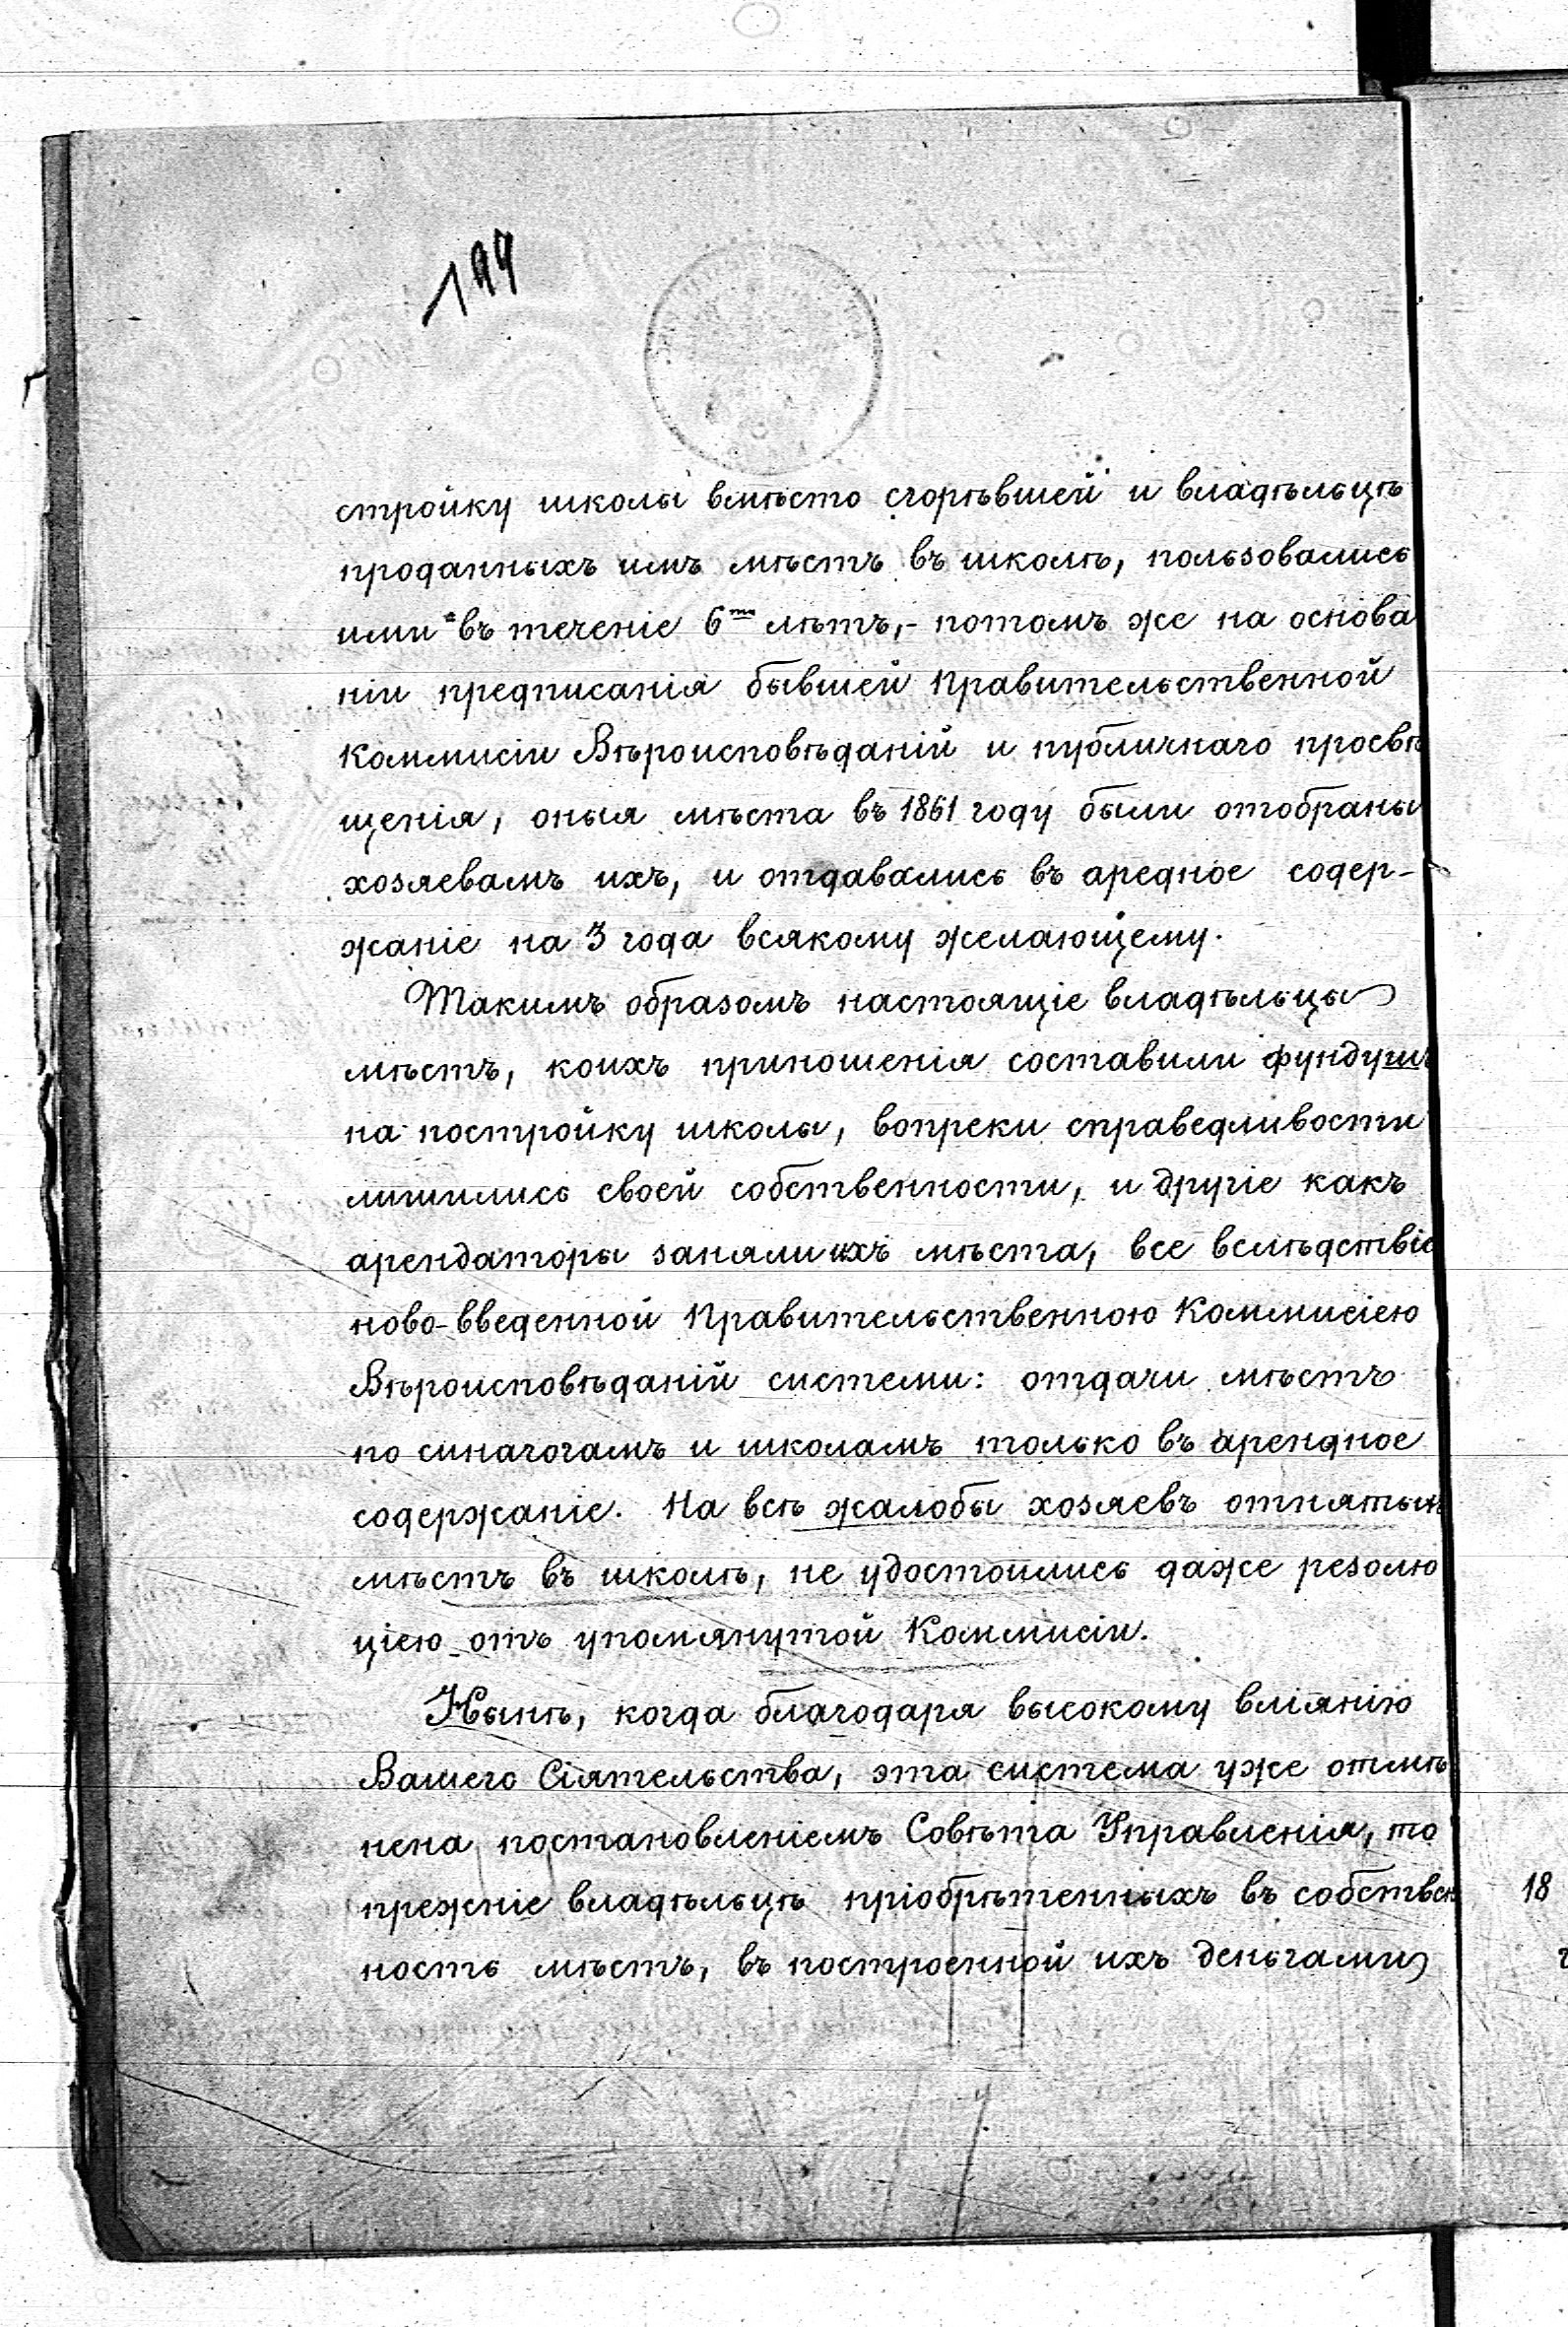 199
стройку школы вмѣсто сгорѣвшей и владѣльцѣ
проданныхъ имъ мѣстъ въ школѣ, пользовались
ими въ теченіе 6ти лѣтъ,- потомъ же на основа
ніи предписанія бывшей Правительственной
Коммисіи Вѣроисповѣданій и публичнаго просвѣ
щенія, оныя мѣста въ 1861 году были отобраны
хозяевамъ ихъ, и отдавались въ аредное содер-
жаніе на 3 года всякому желающему.
Такимъ образомъ настоящіе владѣльцы
мѣстъ, коихъ приношенія составили фундушъ
на постройку школы, вопреки справедливости
лишились своей собственности, и другіе какъ
арендаторы заняли ихъ мѣста, все вслѣдствіе
ново-введенной Правительственною Коммисіею
Вѣроисповѣданій системи: отдачи мѣстъ
по синагогамъ и школамъ только въ арендное
содержаніе. На всѣ жалобы хозяевъ отнятыхъ
мѣстъ въ школѣ, не удостоились даже резолю
ціею отъ упомянутой Коммисіи.
Нынѣ, когда благодаря высокому вліянію
Вашего Сіятельства, эта система уже отмѣ
нена постановленіемъ Совѣта Управленія, то
прежніе владѣльцѣ пріобрѣтенныхъ въ собствен
ность мѣстъ, въ построенной ихъ деньгами
18